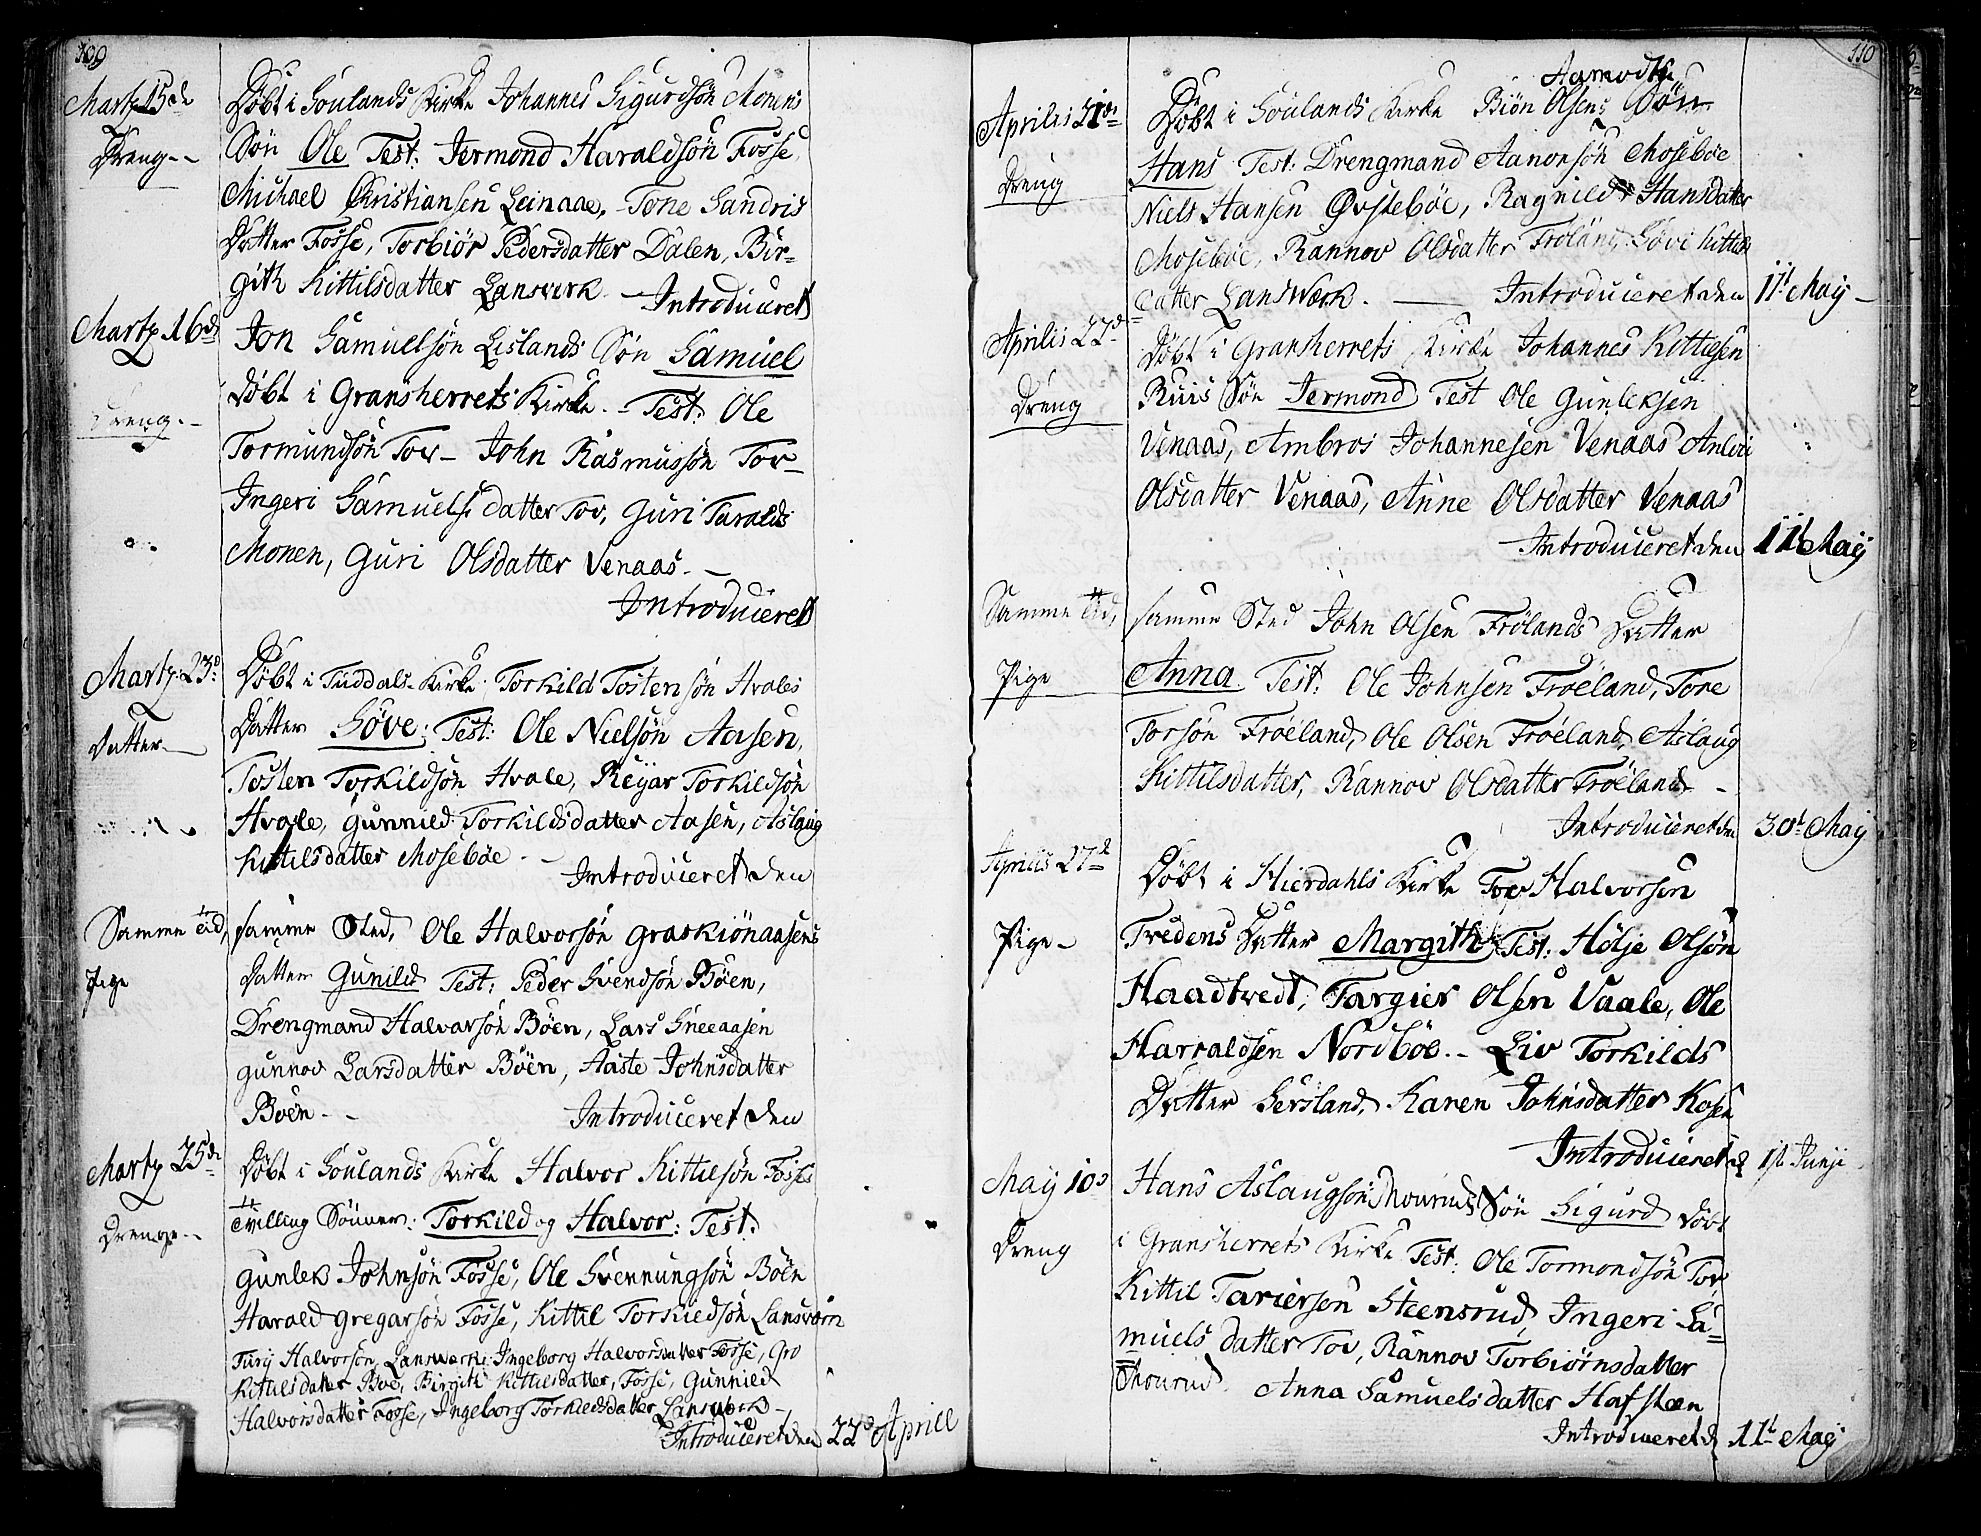 109
Martz 15de
Dreng--
Döbt i Soulands Kirke Johannes Sigurdsön Monens
Sön Ole Test: Jermond Haraldsön Fosse,
Michael Christiansen Leinaae, Tone Sandris
Datter Fosse, Torbiör Pedersdatter Dalen, Bir-
gith Kittilsdatter Lansverk. — Introduceret
Martz 16d
Dreng.-
Jon Samuelsön Lislands Sön Samuel
Döbt i Gransherrets Kirke.- Test: Ole
Tormundsön Tov- John Rasmussön Tov-
Ingeri Samuels datter Tov, Guri Taralds
Monen, Guri Olsdatter Venaas.-
Introduceret
Martz 23d
Datter
Döbt i Tuddals Kirke Torkild Tostensön Hvales
Datter Söve: Test: Ole Nielsön Aasen,
Tosten Torkildsön Hvale, Reyar Torkildsön
Hvale, Gunnild Torkildsdatter Aasen, Aslaug
Kittilsdatter Moseböe.-
Introduceret den
Samme tid,
Pige
samme Sted, Ole Halvorsön Graskiönaasens
Datter Gunild Test: Peder Svendsön Böen,
Drengmand Halvarsön Böen, Lars Sneeaasen
Gunnov Larsdatter Böen, Aaste Johnsdatter
Böen.--
Introduceret den
Martz 25de
Drenge.-
Döbt i Soulands Kirke Halvor Kittilsön Fosses
Tvilling Sönner: Torkild og Halvor: Test:
Gunlek Johnsön Fosse, Ole Svennungsön Böen
Harald Gregarsön Fosse, Kittil Torkildsön Lansværn
Turij Halvorsön Lansverk: Ingeborg Halvorsdatter Fosse, Gro
Kittilsdatter Boe, Birgith Kittilsdatter, Fosse, Gunnild
Halvorsdatter Fosse, Ingeborg Torkildsdatter Lansverk-
Introduceret den 22d Aprill
110
Aprilis 21de
Dreng
Aamodts
Döbt i Soulands Kirke Biön Olsens Sön
Hans Test: Drengmand Aanonsön Mosebøe
Niels Hansen Øvstebøe, Ragnild Hansdatter
Mosebøe, Rannov Olsdatter Frøland, Sövi Kittils
datter Landswerk. — Introduceret den 11t May-
Aprilis 22d
Dreng
Döbt i Gransherrets Kirke Johannes Kittilsen
Ruis Sön Jermond Test Ole Gunleksen
Venaas, Ambros Johannesen Venaas Anlevi
Olsdatter Venaas, Anne Olsdatter Venaas
Introduceret den 11t Maij
Samme tid,
Pige
samme Sted John Olsen Frölands Datter
Anna. Test: Ole Johnsen Fröeland, Tore
Torsön Fröeland, Ole Olsen Fröeland, Aslaug
Kittilsdatter, Rannov Olsdatter Fröeland -
Introduceret den 30t Maij
Aprilis 27d
Pige-
Döbt i Hierdahls Kirke Tov Halvorsen
Tredens Datter Margith Test: Hölje Olsön
Haadtvedt, Targier Olsen Vaale, Ole
Harraldsen Nordböe.- Liv Torkilds
Datter Gersland, Karen Johnsdatter Kosen
Introduceret d 1st Junji
May 10d
Dreng
Hans Aslaugsön Thourud Sön Sigurd Döbt
i Gransherrets Kirke Test: Ole Tormondsön Tov,
Kittil Tariersen Steensrud, Ingeri Sa-
muels datter Tov, Rannov Torbiørnsdatter
Thourud. Anna Samuelsdatter Hafsteen
Introduceret d 11t Maij